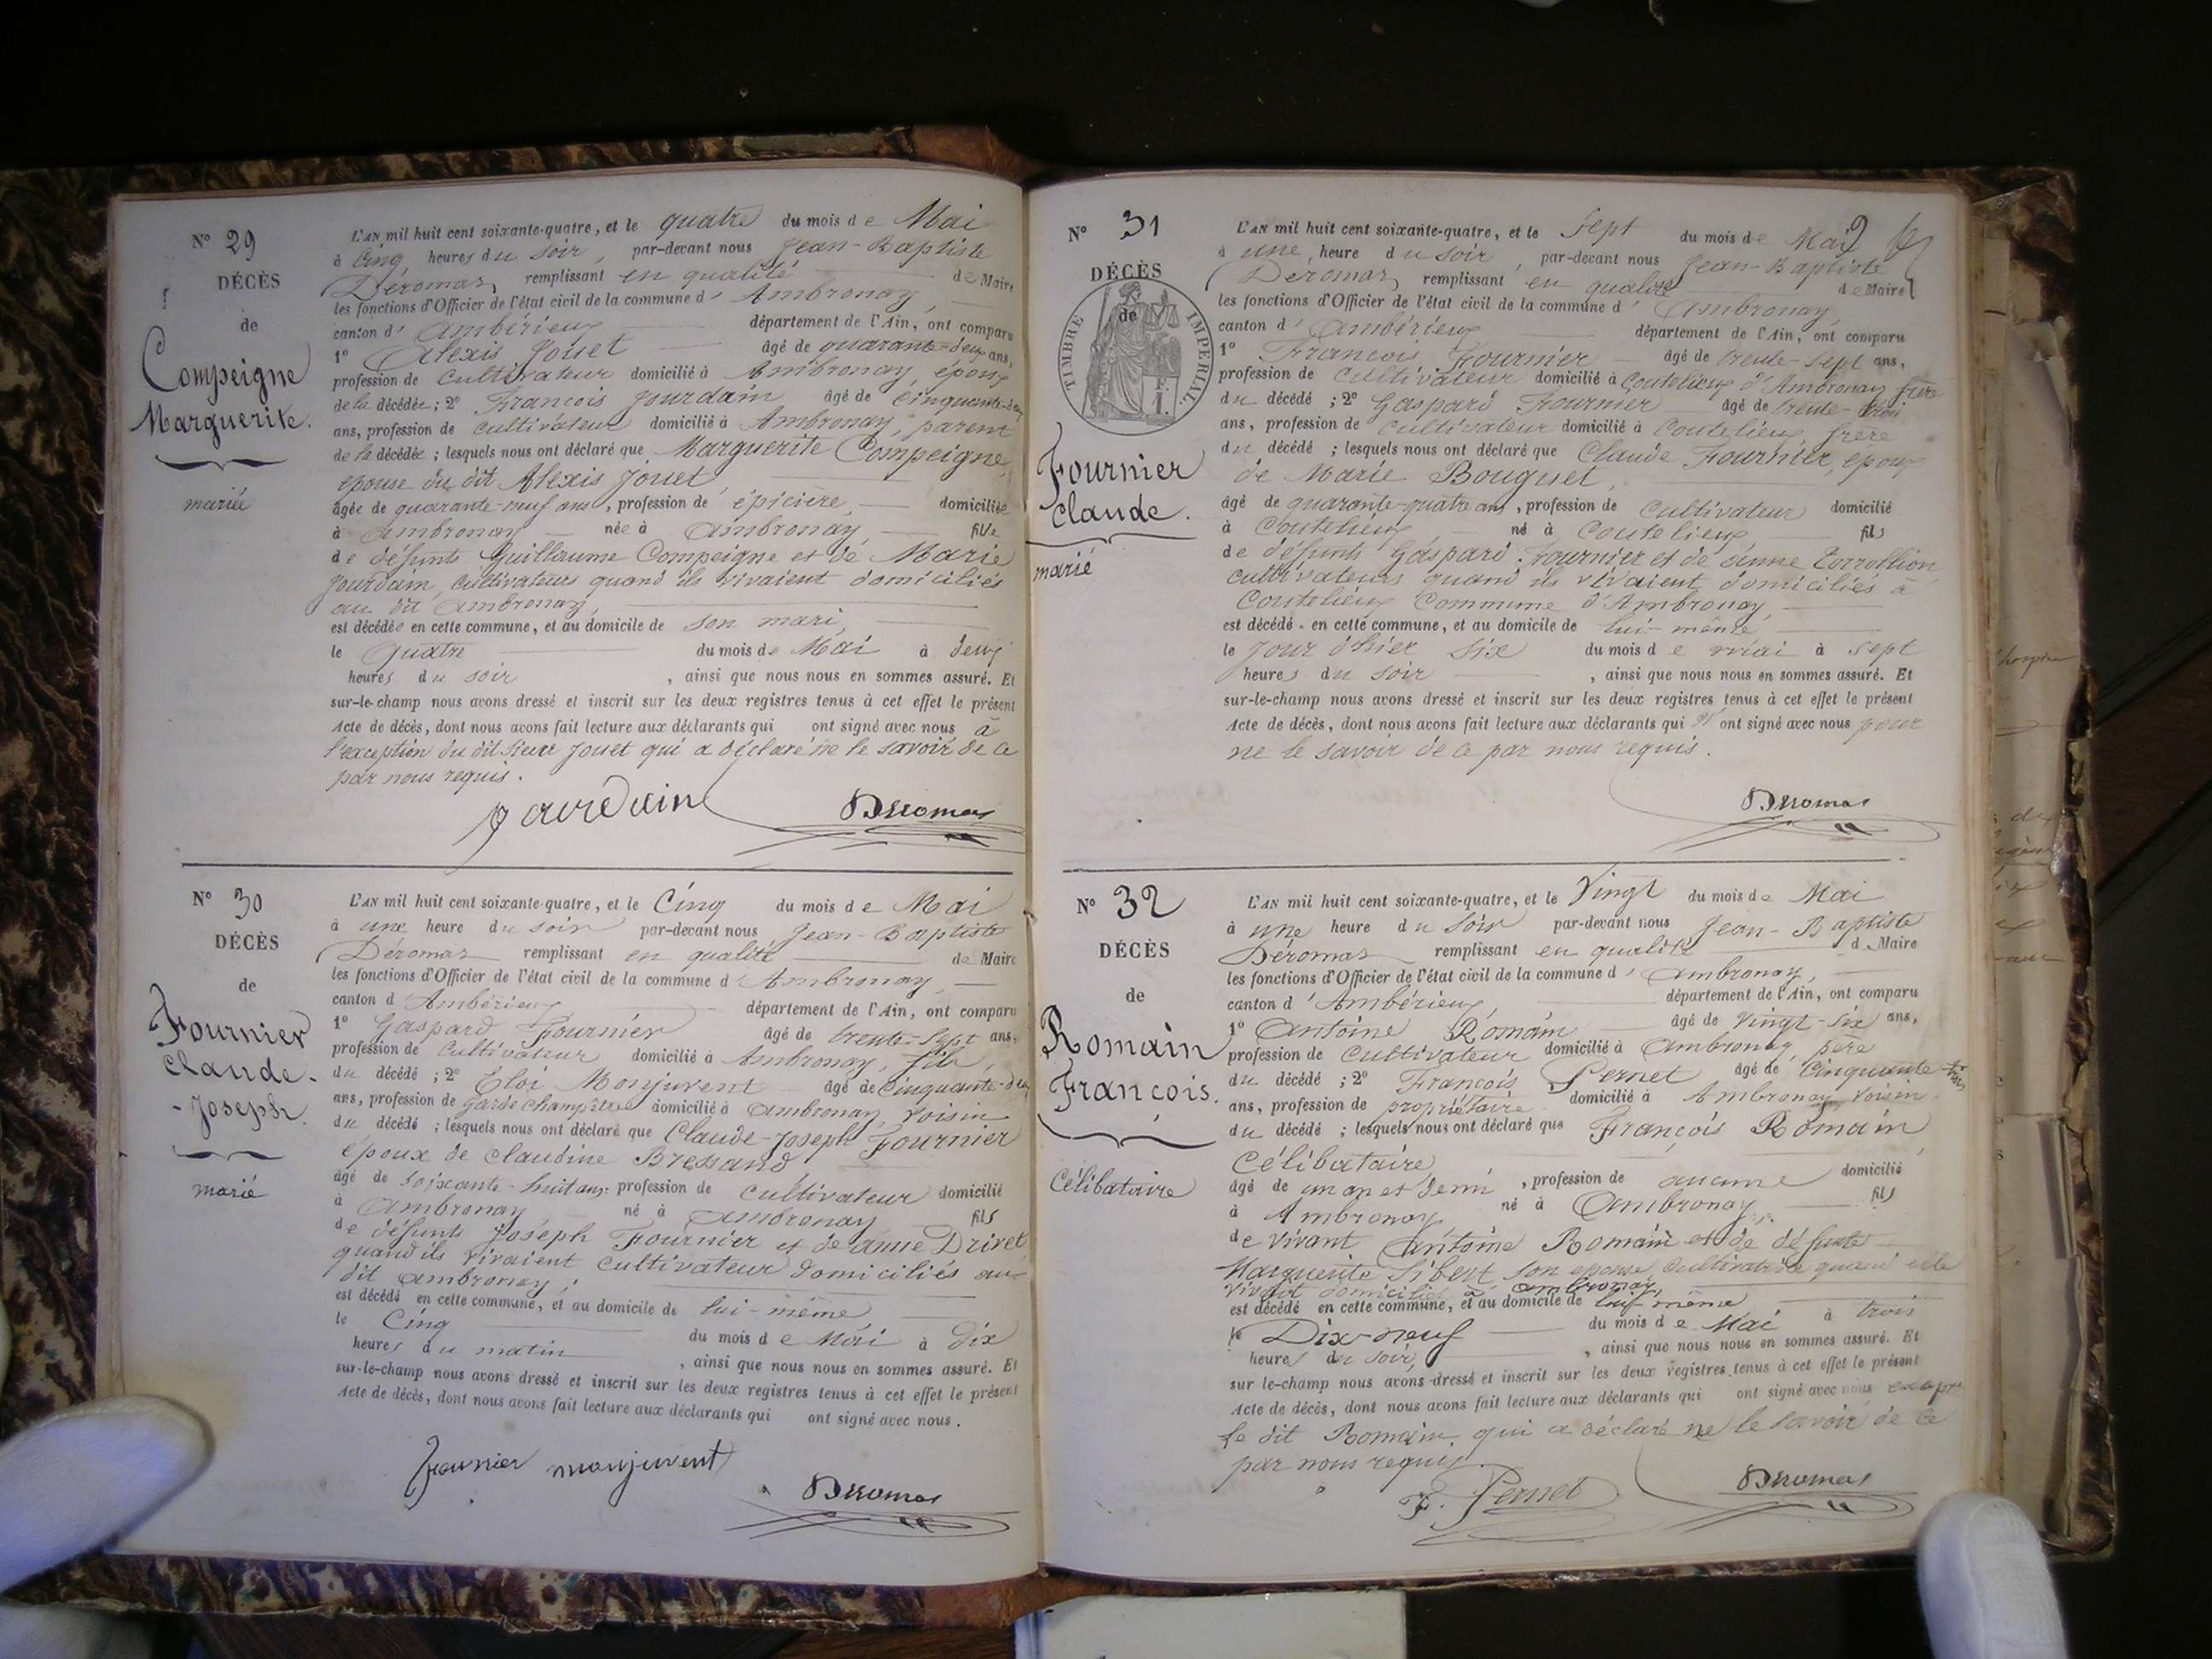 N° 29
DÉCÈS
de
Compeigne
Marguerite.
mariée
L'AN mil huit cent soixante-quatre, et le quatre du mois de Mai
à cinq heures du soir, par-devant nous Jean-Baptiste
Déromas, remplissant en qualité de Maire
les fonctions d'Officier de l'état civil de la commune d' Ambronay,
canton d' Ambérieux département de l'Ain, ont comparu
1° Alexis Jouet âgé de quarante-deux ans,
profession de Cultivateur domicilié à Ambronay, époux
de la décédée; 2° François Jourdain âgé de Cinquante-deux
ans, profession de Cultivateur domicilié à Ambronay, parent
de la décédée; lesquels nous ont déclaré que Marguerite Compeigne,
épouse du dit Alexis Jouet,
âgée de quarante-neuf ans, profession de épicière, domiciliée
à Ambronay née à Ambronay, fille
de défunts Guillaume Compeigne et de Marie
Jourdain, Cultivateurs quand ils vivaient domiciliés
au dit Ambronay,
est décédée en cette commune, et au domicile de son mari,
le Quatre du mois de Mai à deux
heures du soir, ainsi que nous nous en sommes assuré. Et
sur-le-champ nous avons dressé et inscrit sur les deux registres tenus à cet effet le présent
Acte de décès, dont nous avons fait lecture aux déclarants qui ont signé avec nous à
l'exception du dit Sieur Jouet qui a déclaré ne le savoir de ce
par nous requis.
Jourdain Déromas
N° 30
DÉCÈS
de
Fournier
Claude-
-Joseph.
marié
L'AN mil huit cent soixante-quatre, et le Cinq du mois de Mai
à une heure du soir par-devant nous Jean-Baptiste
Déromas remplissant en qualité de Maire
les fonctions d'Officier de l'état civil de la commune d' Ambronay,
canton d' Ambérieux département de l'Ain, ont comparu
1° Gaspard Fournier âgé de trente-sept ans,
profession de Cultivateur domicilié à Ambronay, fils,
du décédé; 2° Eloi Monjuvent âgé de Cinquante-deux
ans, profession de Garde champêtre domicilié à Ambronay, voisin
du décédé; lesquels nous ont déclaré que Claude-Joseph Fournier
époux de Claudine Bressand
âgé de soixante-huit ans profession de Cultivateur domicilié
à Ambronay né à Ambronay fils
de défunts Joseph Fournier et de Anne Drivet
quand ils vivaient Cultivateur domiciliés au
dit Ambronay,
est décédé en cette commune, et au domicile de lui-même,
le Cinq du mois de Mai à Dix
heures du matin, ainsi que nous nous en sommes assuré. Et
sur-le-champ nous avons dressé et inscrit sur les deux registres tenus à cet effet le présent
Acte de décès, dont nous avons fait lecture aux déclarants qui ont signé avec nous.
Fournier monjuvent
Déromas
N° 31
DÉCÈS
de
TIMBRE IMPERIAL
Fournier
Claude.
marié
L'AN mil huit cent soixante-quatre, et le Sept du mois de Mai
à une heure du soir, par-devant nous Jean-Baptiste
Déromas, remplissant en qualité de Maire
les fonctions d'Officier de l'état civil de la commune d' Ambronay,
canton d' Ambérieux département de l'Ain, ont comparu
1° François Fournier âgé de trente-sept ans,
profession de Cultivateur domicilié à Coutelieux d'Ambronay frère
du décédé; 2° Gaspard Fournier âgé de trente-trois
ans, profession de Cultivateur domicilié à Coutelieux, frère
du décédé; lesquels nous ont déclaré que Claude Fournier, époux
de Marie Bouguet,
âgé de quarante-quatre ans, profession de Cultivateur domicilié
à Coutelieux né à Coutelieux, fils
de défunts Gaspard Fournier et de Anne
cultivateurs quand ils vivaient domiciliés à
Coutelieux Commune d'Ambronay
est décédé en cette commune, et au domicile de lui-même
le jour d'hier six du mois de mai à sept
heures du soir, ainsi que nous nous en sommes assuré. Et
sur-le-champ nous avons dressé et inscrit sur les deux registres tenus à cet effet le présent
Acte de décès, dont nous avons fait lecture aux déclarants qui n'ont signé avec nous pour
ne le savoir de ce par nous requis.
Déromas
N° 32
DÉCÈS
de
Romain
François.
Célibataire
L'AN mil huit cent soixante-quatre, et le Vingt du mois de Mai
à une heure du soir par-devant nous Jean-Baptiste
Déromas remplissant en qualité de Maire
les fonctions d'Officier de l'état civil de la commune d' Ambronay,
canton d' Ambérieux, département de l'Ain, ont comparu
1° Antoine Romain âgé de vingt-six ans,
profession de Cultivateur domicilié à Ambronay, père
du décédé; 2° François Pernet âgé de Cinquante-trois
ans, profession de propriétaire domicilié à Ambronay, voisin
du décédé; lesquels nous ont déclaré que François Romain
Célibataire,
âgé de un an et demi, profession de aucune domicilié
à Ambronay né à Ambronay fils
de vivant Antoine Romain et de défunte
Marguerite Sibert son épouse, Cultivatrice quand elle
vivait domiciliée à Ambronay,
est décédé en cette commune, et au domicile de lui-même
le Dix-neuf du mois de Mai à trois
heures du soir, ainsi que nous nous en sommes assuré. Et
sur le-champ nous avons dressé et inscrit sur les deux registres tenus à cet effet le présent
Acte de décès, dont nous avons fait lecture aux déclarants qui ont signé avec nous excepté
le dit Romain, qui a déclaré ne le savoir de ce
par nous requis.
F. Pernet Déromas